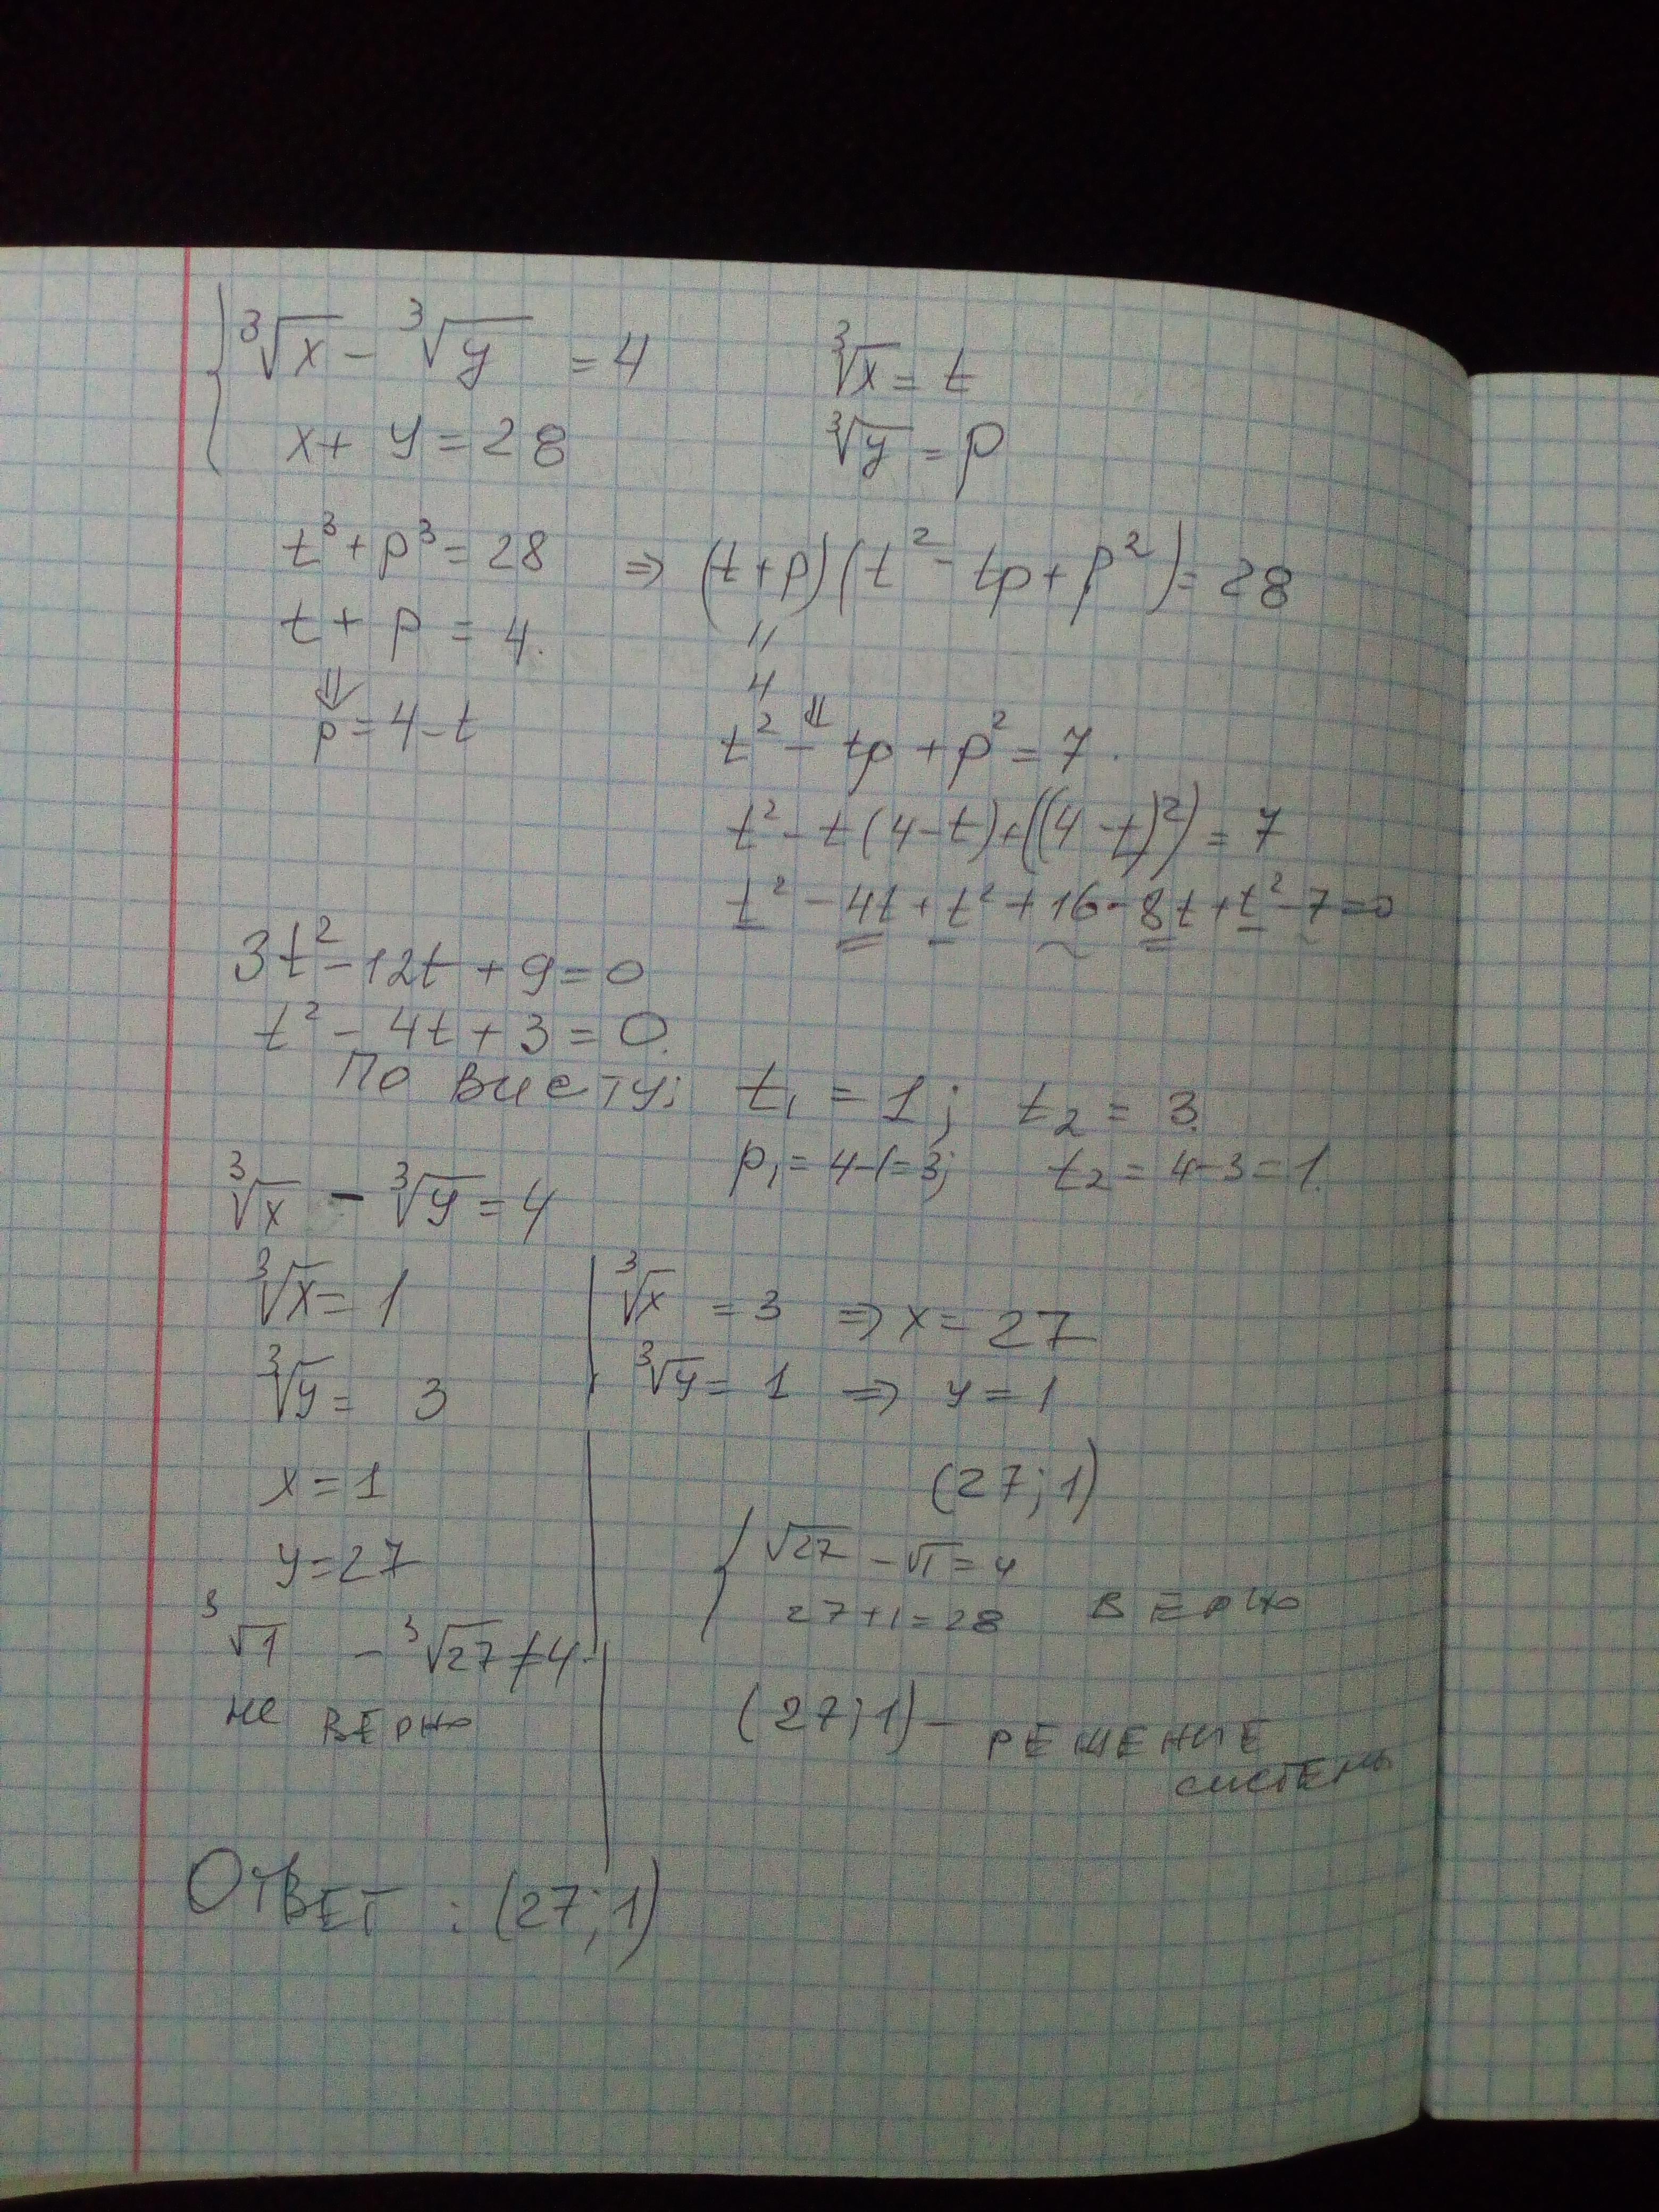 ∛x - ∛y = 4
x + y = 28
∛x = t
∛y = p
t³ + p³ = 28 ⇒ (t + p)(t² - tp + p²) = 28
t + p = 4.
"
4
⇓
p = 4 - t
⇓
t² - tp + p² = 7.
t² - t(4 - t) + ((4 - t)²) = 7
t² - 4t + t² + 16 - 8t + t² - 7 = 0
3t² - 12t + 9 = 0
t² - 4t + 3 = 0.
По Виету: t₁ = 1; t₂ = 3.
p₁ = 4 - 1 = 3; t₂ = 4 - 3 = 1.
∛x - ∛y = 4
∛x = 1
∛y = 3
x = 1
y = 27
∛1 - ∛27 ≠ 4.
не ВЕРНО
∛x = 3 ⇒ x = 27
∛y = 1 ⇒ y = 1
(27; 1)
√27 - √1 = 4
27 + 1 = 28 ВЕРНО
(27; 1) - РЕШЕНИЕ
СИСТЕМЫ
ОТВЕТ : (27; 1)